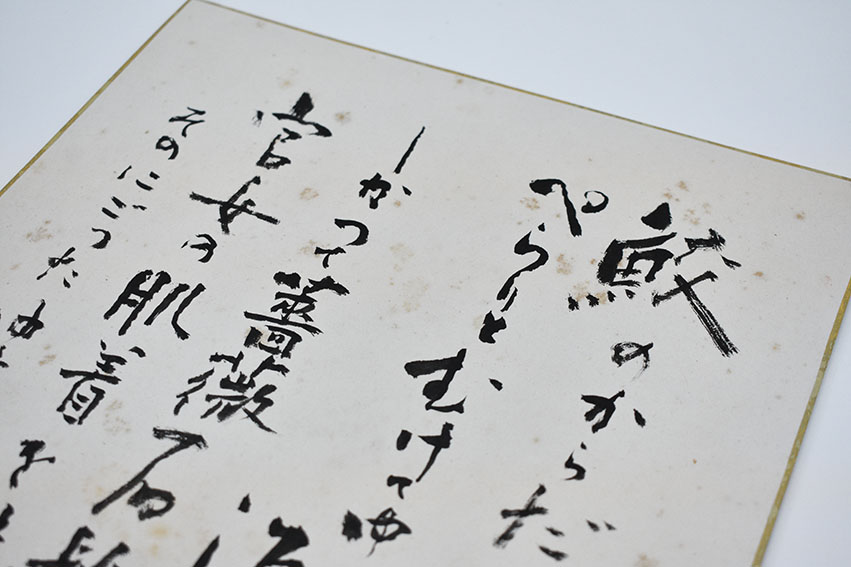 鮫のからだ
ぺらりとむけてゆ
―かつて薔薇
官女の肌着
そのにごつたゆ